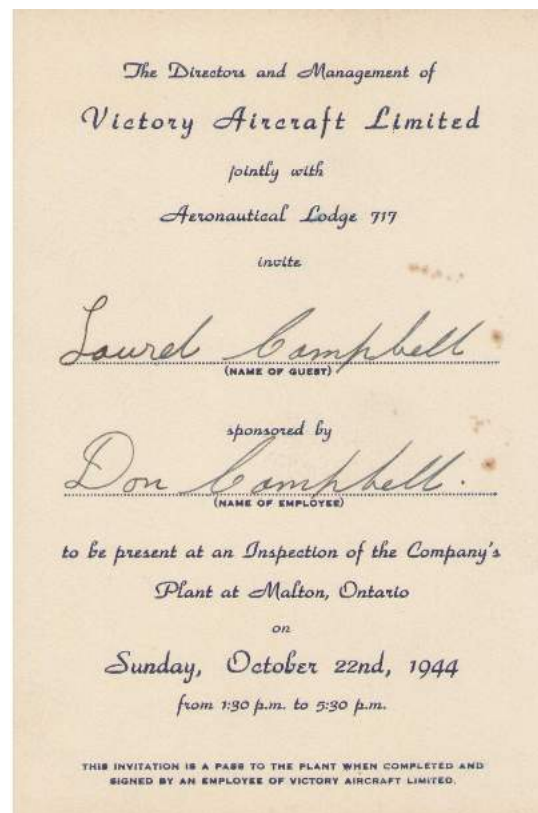 The Directors and Management of
Victory Aircraft Limited
jointly with
Aeronautical Lodge 717
invite
Laurel Campbell
(NAME OF GUEST)
sponsored by
Don Campbell.
(NAME OF EMPLOYEE)
to be present at an Inspection of the Company's
Plant at Malton, Ontario
on
Sunday, October 22nd, 1944
from 1:30 p.m. to 5:30 p.m.
THIS INVITATION IS A PASS TO THE PLANT WHEN COMPLETED AND
SIGNED BY AN EMPLOYEE OF VICTORY AIRCRAFT LIMITED.